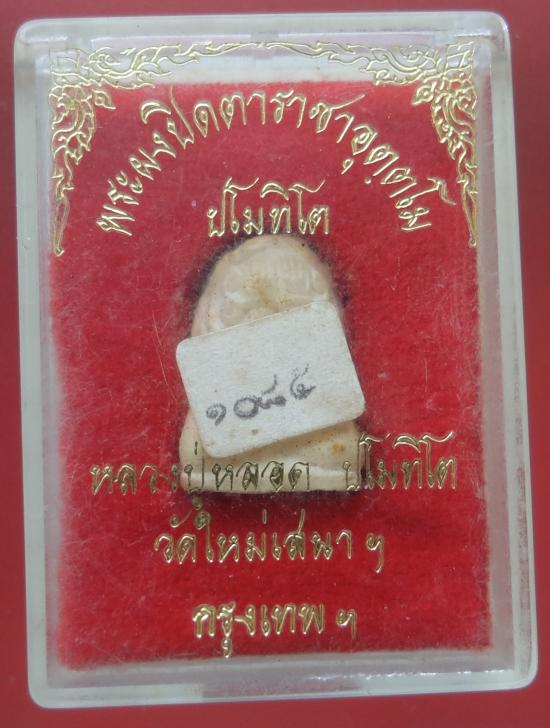 พระผงปิดตาราชาอุตฺตโม
ปโมทิโต
๑๐๘๕
หลวงปู่หลอด ปโมทิโต
วัดใหม่เสนาฯ
กรุงเทพฯ